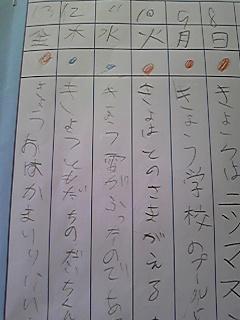 8
日
きょうは ニツマス
9
月
きょう学校のプール
10
火
きょはとのさまがえる
11
水
きょう雷がふったのでその
12
木
きょうともだちのだいちくん
13
金
きょうおおがまり